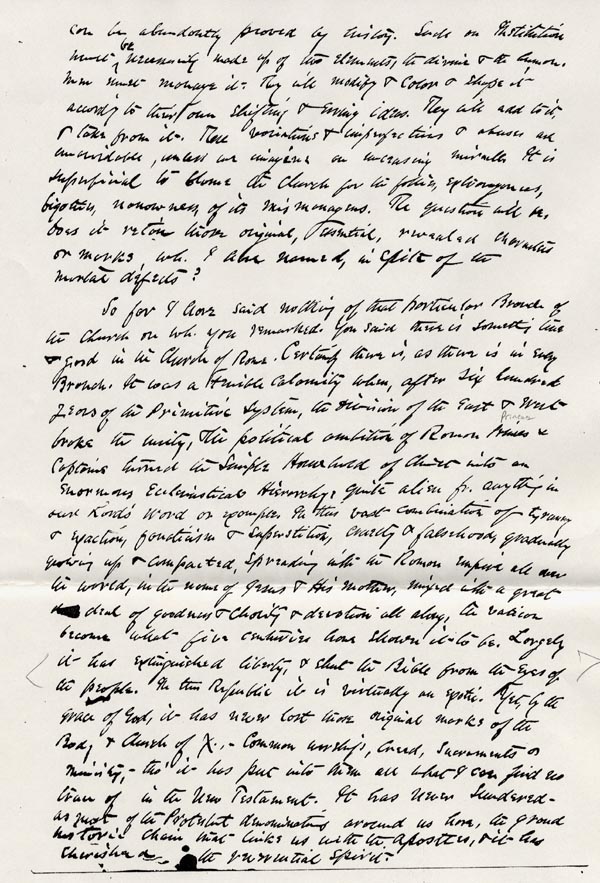 can be abundantly proved by history. Such an Institution
must be necessarily made up of two elements, the divine & the human.
Men must manage it. They will modify & color & shape it
according to their own shifting & erring ideas. They will add to it,
& take from it. These variations & imperfections & abuses are
unavoidable, unless we imagine an unceasing miracle. It is
superficial to blame the Church for the follies, extravagances,
bigotries, narrowness, of its mismanagers. The question will be,
does it retain those original, essential, revealed characters
or marks, wh. I have named, in spite of the
mortal defects?
So far I have said nothing of that particular Branch of
the Church on wh. you remarked. You said there is something
good in the Church of Rome. Certainly there is, as there is in every
Branch. It was a terrible calamity when, after six hundred
years of the Primitive System, the division of the East & West
Princes
broke the unity, the political ambition of Roman Princes &
Captains turned the simple Household of Christ into an
enormous Ecclesiastical Hierarchy, quite alien fr. anything in
our Lord's Word or example. In this vast combination of tyranny
& exaction, fanaticism & superstition, cruelty & falsehood, gradually
growing up & compacted, spreading with the Roman Empire all over
the world, in the name of Jesus & His mother, mixed with a great
deal of goodness & charity & devotion all along, the vatican
became what five centuries have shown it to be. Largely
it has extinguished liberty, & shut the Bible from the eyes of
the people. In this Republic it is virtually an exotic. Yet, by the
grace of God, it has never lost those original marks of the
Body & Church of X., - Common worship, Creed, Sacraments &
ministry, - tho' it has put into them all what I can find no
trace of in the New Testament. It has never sundered -
as most of the Protestant denominations around us have, the grand
historic chain that links us with the Apostles, & it has
cherished the reverential spirit.